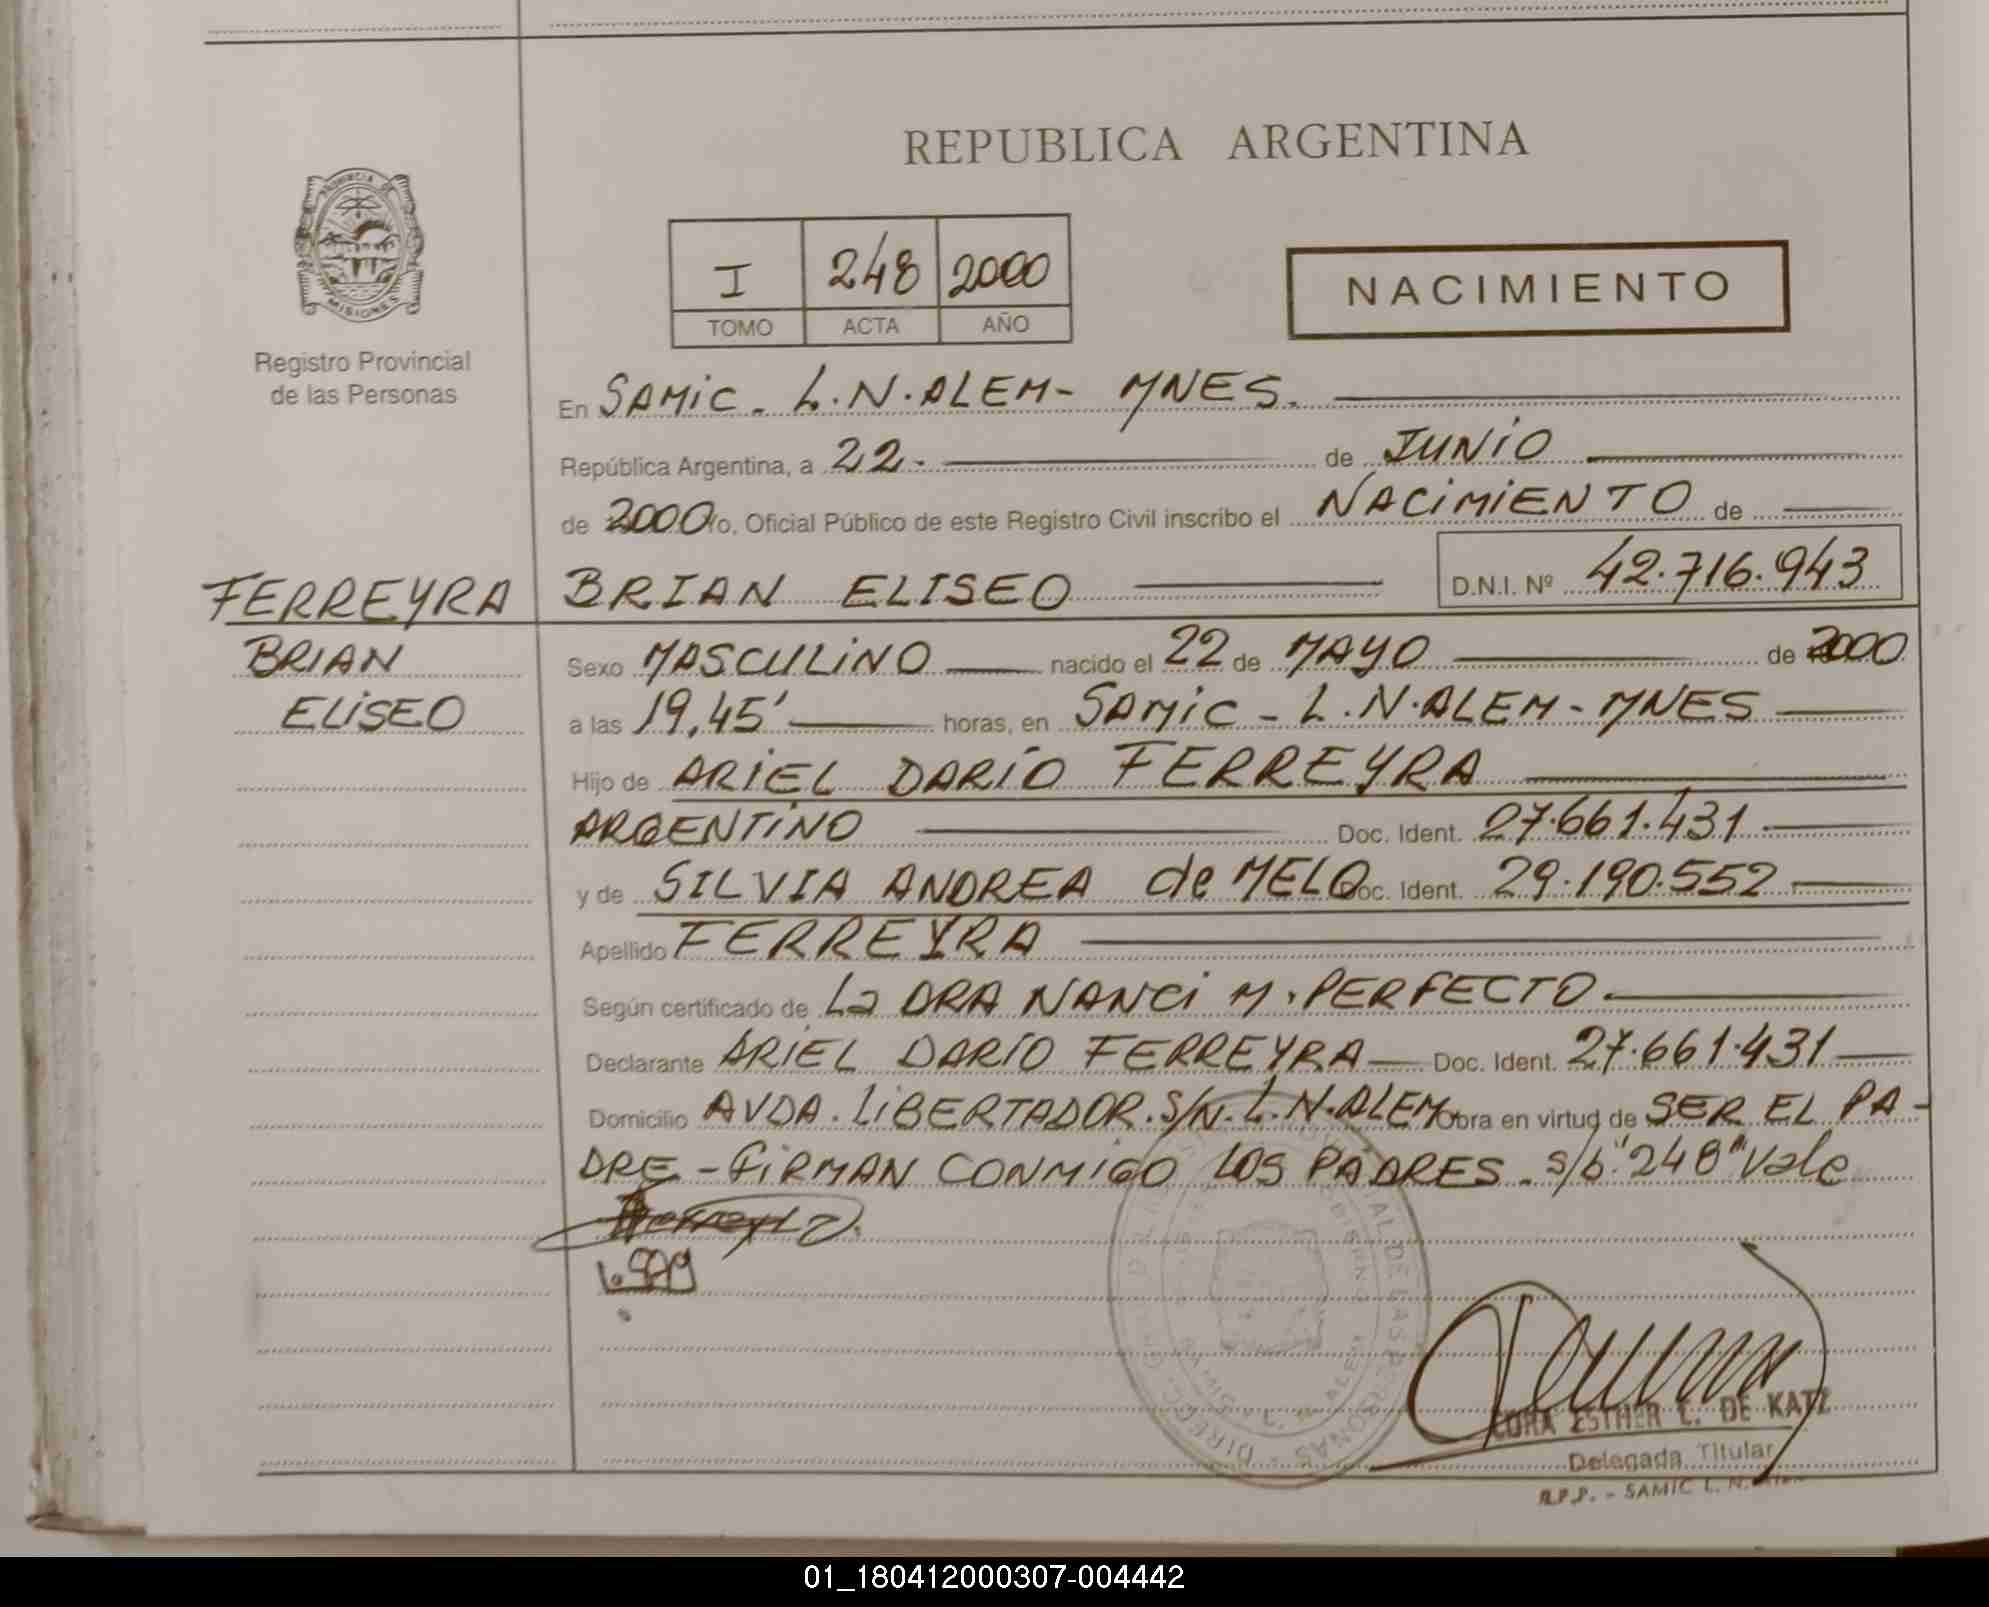 REPUBLICA ARGENTINA
PROVINCIA DE
MISIONES
Registro Provincial
de las Personas
I 248 2000
TOMO ACTA AÑO
NACIMIENTO
En SAMIC - L.N.ALEM - MNES.
República Argentina, a 22. de JUNIO
de 2000 Yo, Oficial Público de este Registro Civil inscribo el NACIMIENTO de
BRIAN ELISEO D.N.I. Nº 42.716.943
FERREYRA
BRIAN
ELISEO
Sexo MASCULINO nacido el 22 de MAYO de 2000
a las 19,45' horas, en SAMIC - L.N.ALEM - MNES
Hijo de ARIEL DARÍO FERREYRA
ARGENTINO Doc. Ident. 27.661.431
y de SILVIA ANDREA de MELO Doc. Ident. 29.190.552
Apellido FERREYRA
Según certificado de La DRA NANCI M. PERFECTO.
Declarante ARIEL DARÍO FERREYRA Doc. Ident. 27.661.431
Domicilio AVDA. LIBERTADOR. S/N. L.N.ALEM Obra en virtud de SER EL PA-
DRE - FIRMAN CONMIGO LOS PADRES. s/b "248" Vale
CORA ESTHER L. DE KATZ
Delegada Titular
R.P.P. - SAMIC L. N.
01_180412000307-004442